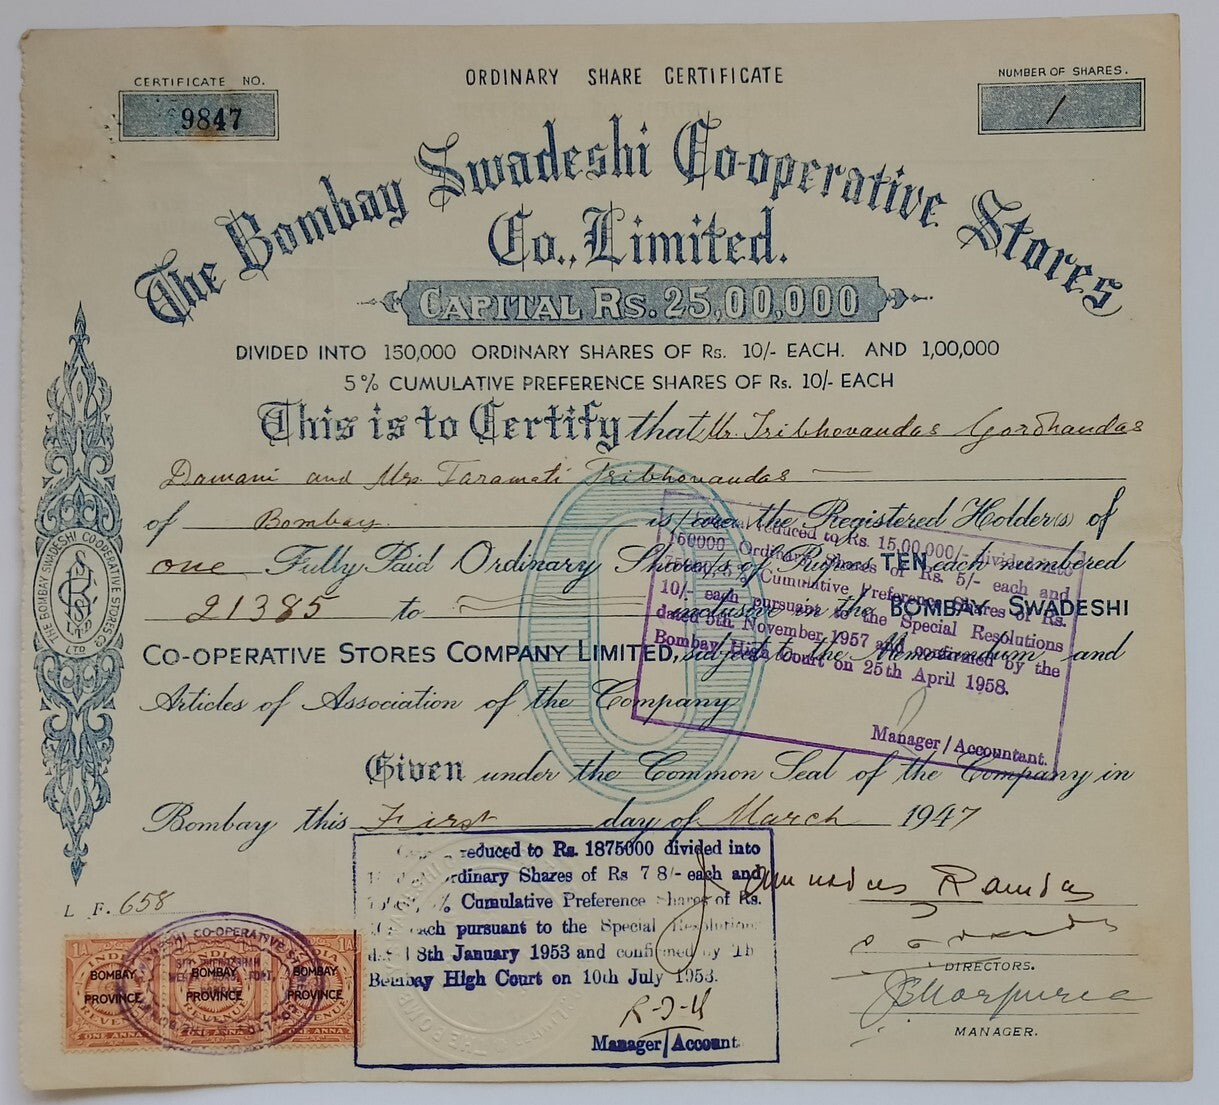 CERTIFICATE NO.
9847
ORDINARY SHARE CERTIFICATE
NUMBER OF SHARES.
1
The Bombay Swadeshi Co-operative Stores
Co., Limited.
CAPITAL RS. 25,00,000
DIVIDED INTO 150,000 ORDINARY SHARES OF RS. 10/- EACH. AND 1,00,000
5% CUMULATIVE PREFERENCE SHARES OF RS. 10/- EACH
This is to Certify that Mr. Tribhovandas Gordhandas
Damani and Mrs. Taramati Tribhovandas
of Bombay. is/are the Registered Holder(s) of
one Fully Paid Ordinary Shares of Rupees TEN each numbered
21385 to inclusive in the BOMBAY SWADESHI
CO-OPERATIVE STORES COMPANY LIMITED, subject to the Memorandum and
Articles of Association of the Company
reduced to Rs. 15,00,000/- divided into
150000 Ordinary Shares of Rs. 5/- each and
Cumulative Preference Shares of Rs.
10/- each pursuant to the Special Resolutions
dated 5th November 1957 and confirmed by the
Bombay High Court on 25th April 1958.
Manager/Accountant.
THE BOMBAY SWADESHI CO-OPERATIVE STORES CO
LTD
Given under the Common Seal of the Company in
Bombay this First day of March 1947
reduced to Rs. 1875000 divided into
Ordinary Shares of Rs 7 8/- each and
% Cumulative Preference Shares of Rs.
each pursuant to the Special Resolution
8th January 1953 and confirmed by Th
Bombay High Court on 10th July 1953.
Manager/Account
L. F. 658
DIRECTORS.
MANAGER.
1A INDIA 1A
BOMBAY BOMBAY BOMBAY
PROVINCE PROVINCE PROVINCE
REVENUE
ONE ANNA ONE ANNA ONE ANNA
CO-OPERATIVE